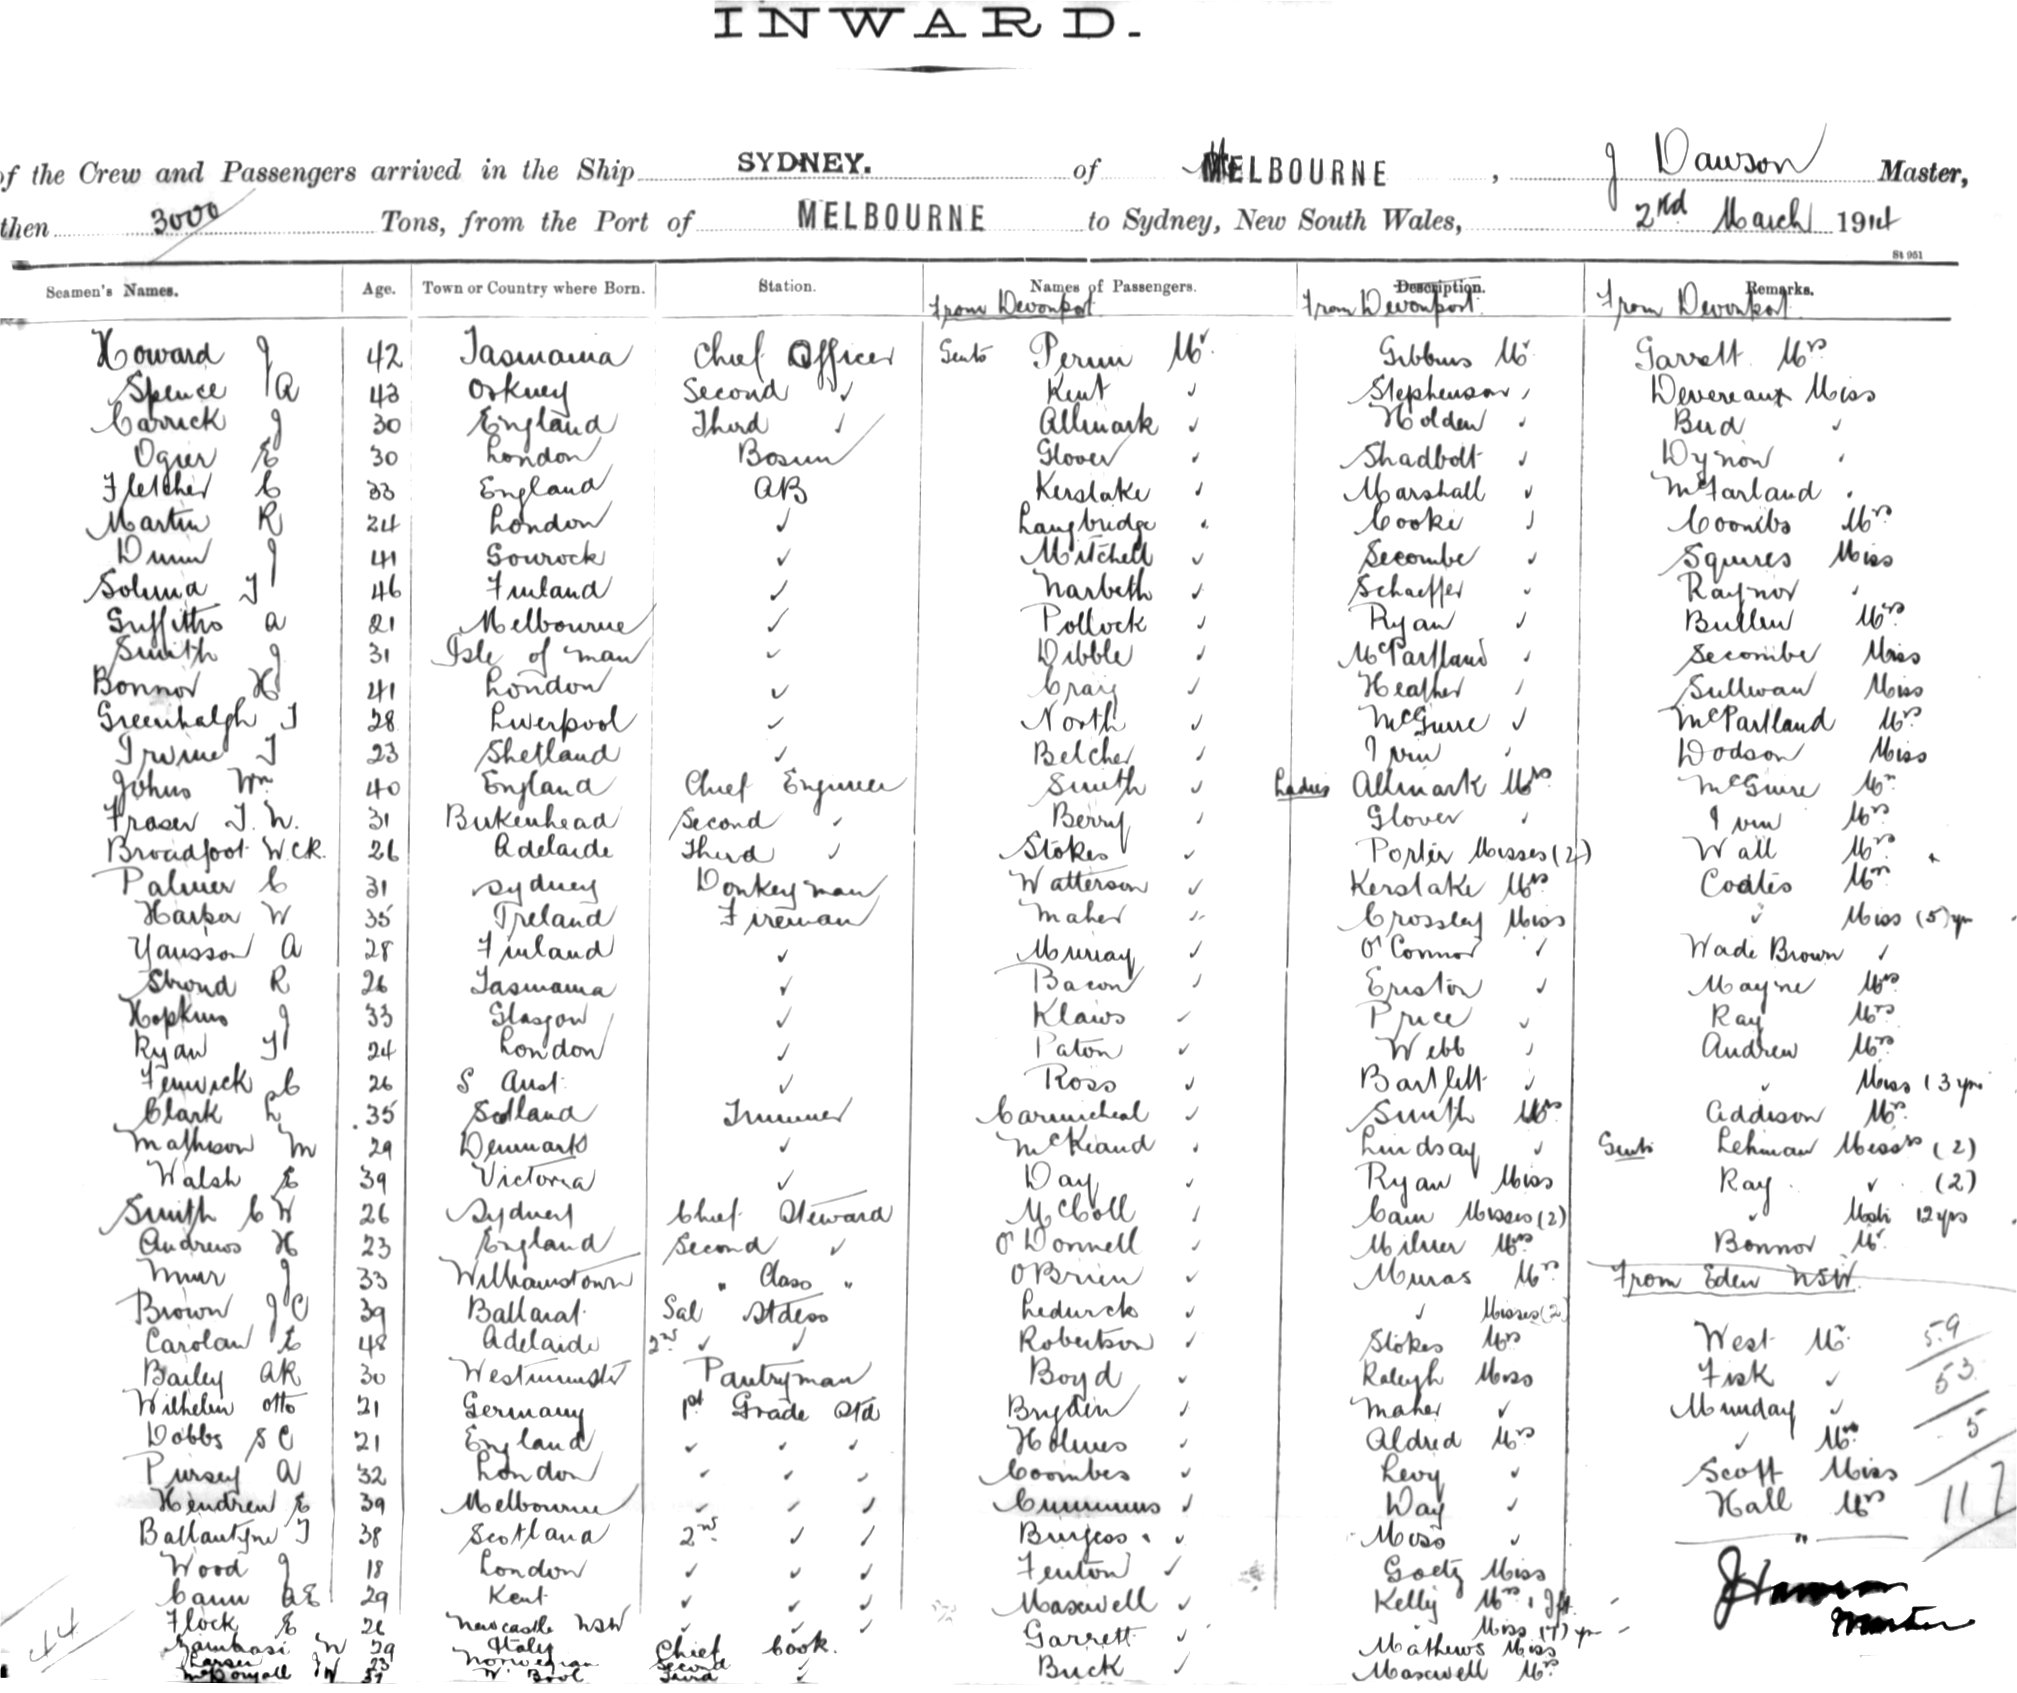 INWARD.
of the Crew and Passengers arrived in the Ship SYDNEY. of MELBOURNE , J Dawson Master,
then 3000 Tons, from the Port of MELBOURNE to Sydney, New South Wales, 2nd March 1914
St 951
Seamen's Names. Age. Town or Country where Born. Station. Names of Passengers. Description. Remarks.
From Devonport From Devonport From Devonport
Howard J 42 Tasmania Chief Officer Gents Perrin Mr. Gibbons Mr Garrett Mrs
Spence A 43 Orkney Second ✓ Kent ✓ Stephenson ✓ Devereaux Miss
Carrick J 30 England Third ✓ Allmark ✓ Holden ✓ Bird ✓
Ogier E 30 London Bosun Glover ✓ Shadbolt ✓ Dynon ✓
Fletcher C 33 England AB Kerslake ✓ Marshall ✓ McFarland ✓
Martin R 24 London ✓ Langbridge ✓ Cooke ✓ Coombs Mrs
Dunn J 41 Gourock ✓ Mitchell ✓ Secombe ✓ Squires Miss
T 46 Finland ✓ Narbeth ✓ Schaeffer ✓ Raynor ✓
Griffiths A 21 Melbourne ✓ Pollock ✓ Ryan ✓ Bullen Mrs
Smith J 31 Isle of Man ✓ Dibble ✓ McPartland ✓ Secombe Miss
Bonnor H 41 London ✓ Craig ✓ Heather ✓ Sullivan Miss
Greenhalgh T 28 Liverpool ✓ North ✓ McGuire ✓ McPartland Mrs
Irvine T 23 Shetland ✓ Belcher ✓ Irvin ✓ Dodson Miss
Johns Wm 40 England Chief Engineer Smith ✓ Ladies Allmark Mrs McGuire Mrs
Fraser T. W. 31 Birkenhead Second ✓ Berry ✓ Glover ✓ Irvin Mrs
Broadfoot W.C.R. 26 Adelaide Third ✓ Stokes ✓ Porter Misses (2) Wall Mrs
Palmer C 31 Sydney Donkeyman Watterson ✓ Kerslake Mrs Coates Mrs
Harper W 35 Ireland Fireman Maher ✓ Crossley Miss ✓ Miss (5) yrs
Yansson A 28 Finland ✓ Murray ✓ O'Connor ✓ Wade Brown ✓
Strond R 26 Tasmania ✓ Bacon ✓ Eriston ✓ Mayne Mrs
Hopkins J 33 Glasgow ✓ Klaws ✓ Price ✓ Ray Mrs
Ryan T 24 London ✓ Paton ✓ Webb ✓ Andrew Mrs
Fenwick C 26 S Aust. ✓ Ross ✓ Bartlett ✓ ✓ Miss (3 yrs
Clark L 35 Scotland Trimmer Carmicheal ✓ Smith Mrs Addison Mrs
Matheson M 29 Denmark ✓ McKeand ✓ Lindsay ✓ Gents Lehman Messrs (2)
Walsh E 39 Victoria ✓ Day ✓ Ryan Miss Ray ✓ (2)
Smith C W 26 Sydney Chief Steward McColl ✓ Cain Misses (2) ✓ Mstr 12 yrs
Andrews H 23 England Second ✓ O'Donnell ✓ Milner Mrs Bonnor Mr.
Muir J 33 Williamstown " Class " O'Brien ✓ Muras Mrs From Eden NSW
Brown J C 39 Ballarat Sal Stdess ✓ ✓ Misses (2)
Carolan E 48 Adelaide 2nd ✓ ✓ Robertson ✓ Stokes Mrs West Mr. 59
Bailey AR 30 Westminster Pantryman Boyd ✓ Raleigh Miss Fisk ✓ 53
Wilhelm Otto 21 Germany 1st Grade Std Brydin ✓ Maher ✓ Munday ✓
Dobbs S C 21 England ✓ ✓ ✓ Holmes ✓ Aldred Mrs ✓ Mrs 5
Pursey A 32 London ✓ ✓ ✓ Coombes ✓ Levy ✓ Scott Miss
Hendren E 39 Melbourne ✓ ✓ ✓ Cummins ✓ Day ✓ Hall Mrs 117
Ballantyne T 38 Scotland 2nd ✓ ✓ Burgess ✓ Moss ✓
Wood J 18 London ✓ ✓ ✓ Fenton ✓ Goetz Miss
Cann A E 29 Kent ✓ ✓ ✓ Maxwell ✓ Kelly Mrs
Flock E 26 Newcastle NSW ✓ ✓ ✓ Garrett ✓ Miss (7) yrs
Zambasi W 29 Italy Chief Cook. Mathews Miss
Larsen 23 Norwegian Second ✓ Buck ✓ Maxwell Mrs
McDougall W 37 W'Bool Third ✓
44
J Dawson
Master